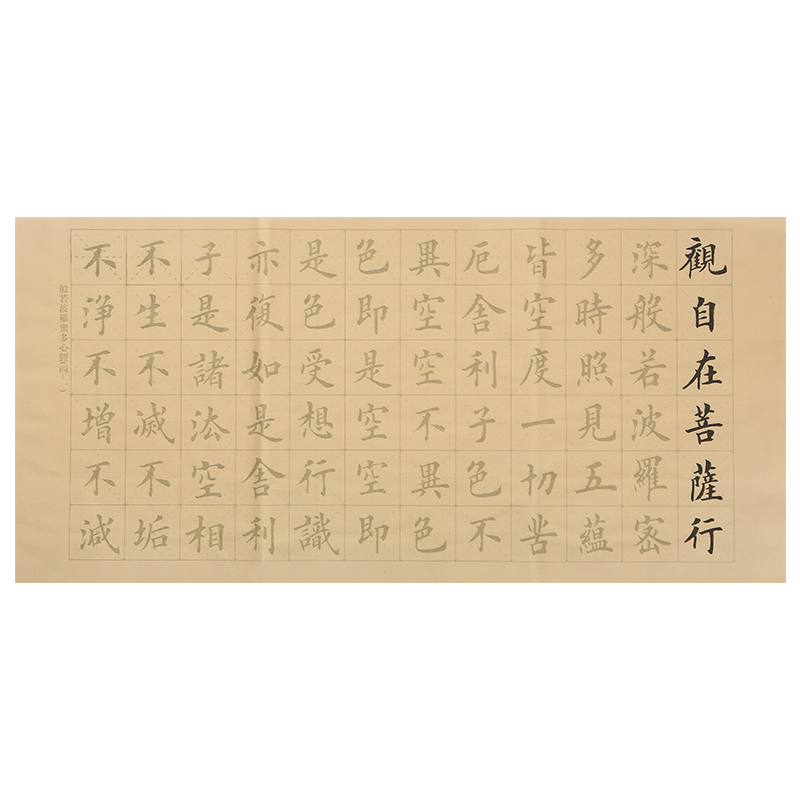 觀自在菩薩行
深般若波羅密
多時照見五蘊
皆空度一切苦
厄舍利子色不
異空空不異色
色即是空空即
是色受想行識
亦復如是舍利
子是諸法空相
不生不滅不垢
不淨不增不減
般若波羅蜜多心經(四-一)